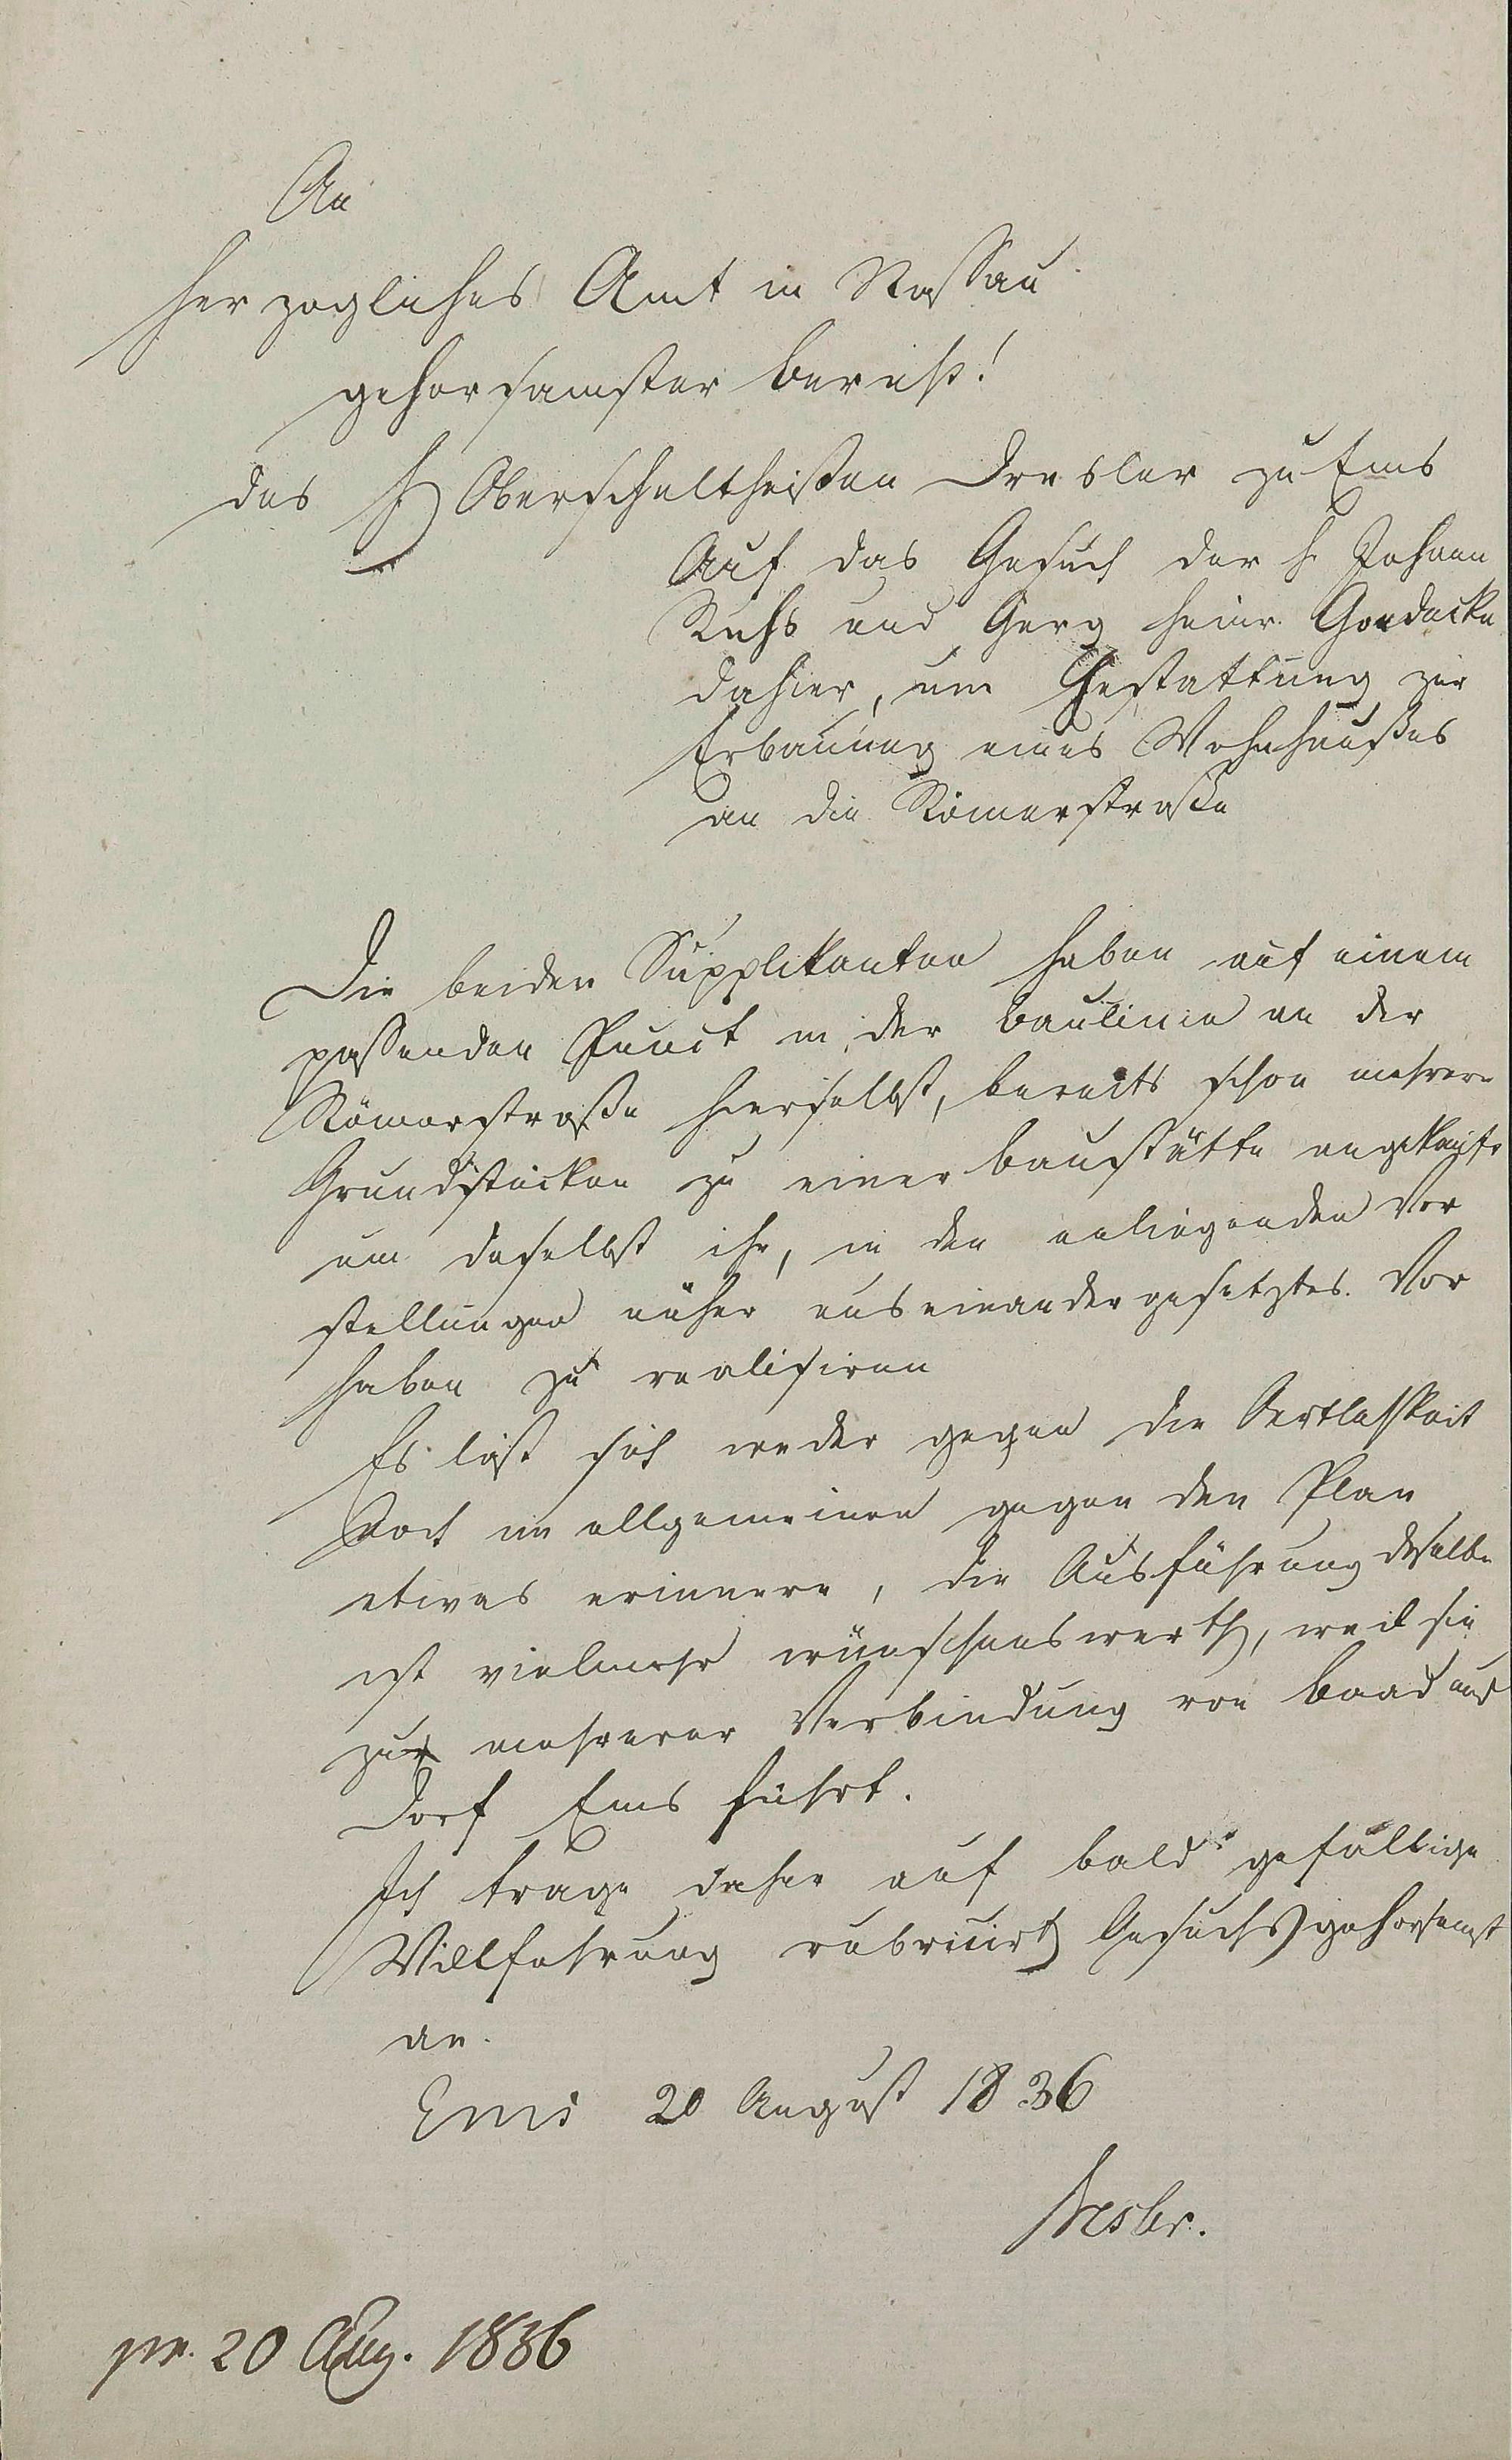 An
Herzogliches Amt in Nassau
gehorsamster Bericht!
des H Oberschultheißen Dresler zu Ems
Auf das Gesuch der H. Johann
und Gerg Heinr.
dahier, um Gestattung zur
Erbauung eines Wohnhaußes
an die Römerstraße
Die beiden Supplikanten haben auf einem
passenden Punct in der Baulinie an der
Römerstraße hierselbst, bereits schon mehrere
Grundstücken zu einer Baustätte angekauft
um daselbst ihr, in den anliegenden Vor
stellungen näher auseinandergesetztes Vor
haben zu realisiren
Es läßt sich weder gegen die Oertlichkeit
noch im allgemeinen gegen den Plan
etwas erinnern, die Ausführung deßelben
ist vielmehr wünschenswerth, weil sie
zur mehrerer Verbindung von Baad und
Dorf Ems führt.
Ich trage daher auf bald gefällige
Willfahrung rubricirt Gesuchs gehorsamst
an.
Ems 20 August 1836
Dresler.
pr. 20 Aug. 1836